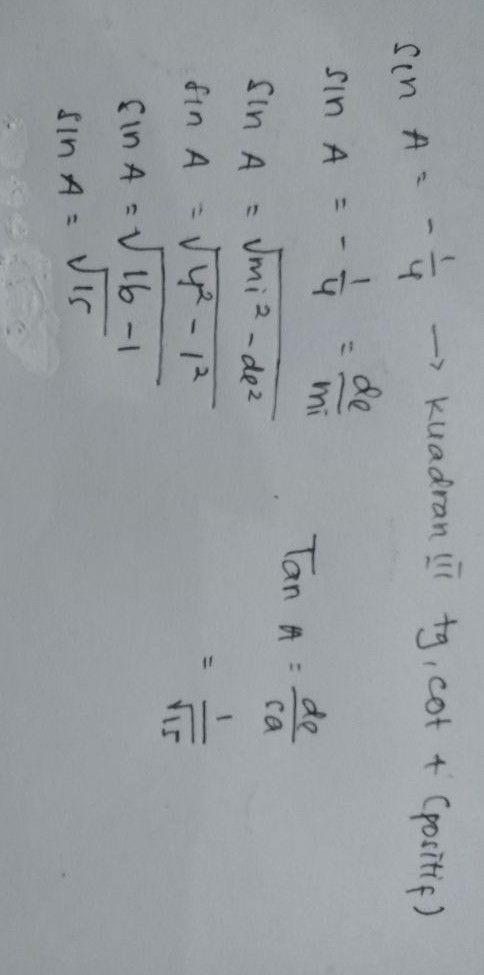 sin A = - 1/4 → kuadran III tg, cot + (positif)
sin A = - 1/4 = de/mi
sin A = √mi² - de²
sin A = √4² - 1²
sin A = √16 - 1
sin A = √15
Tan A = de/sa
= 1/√15